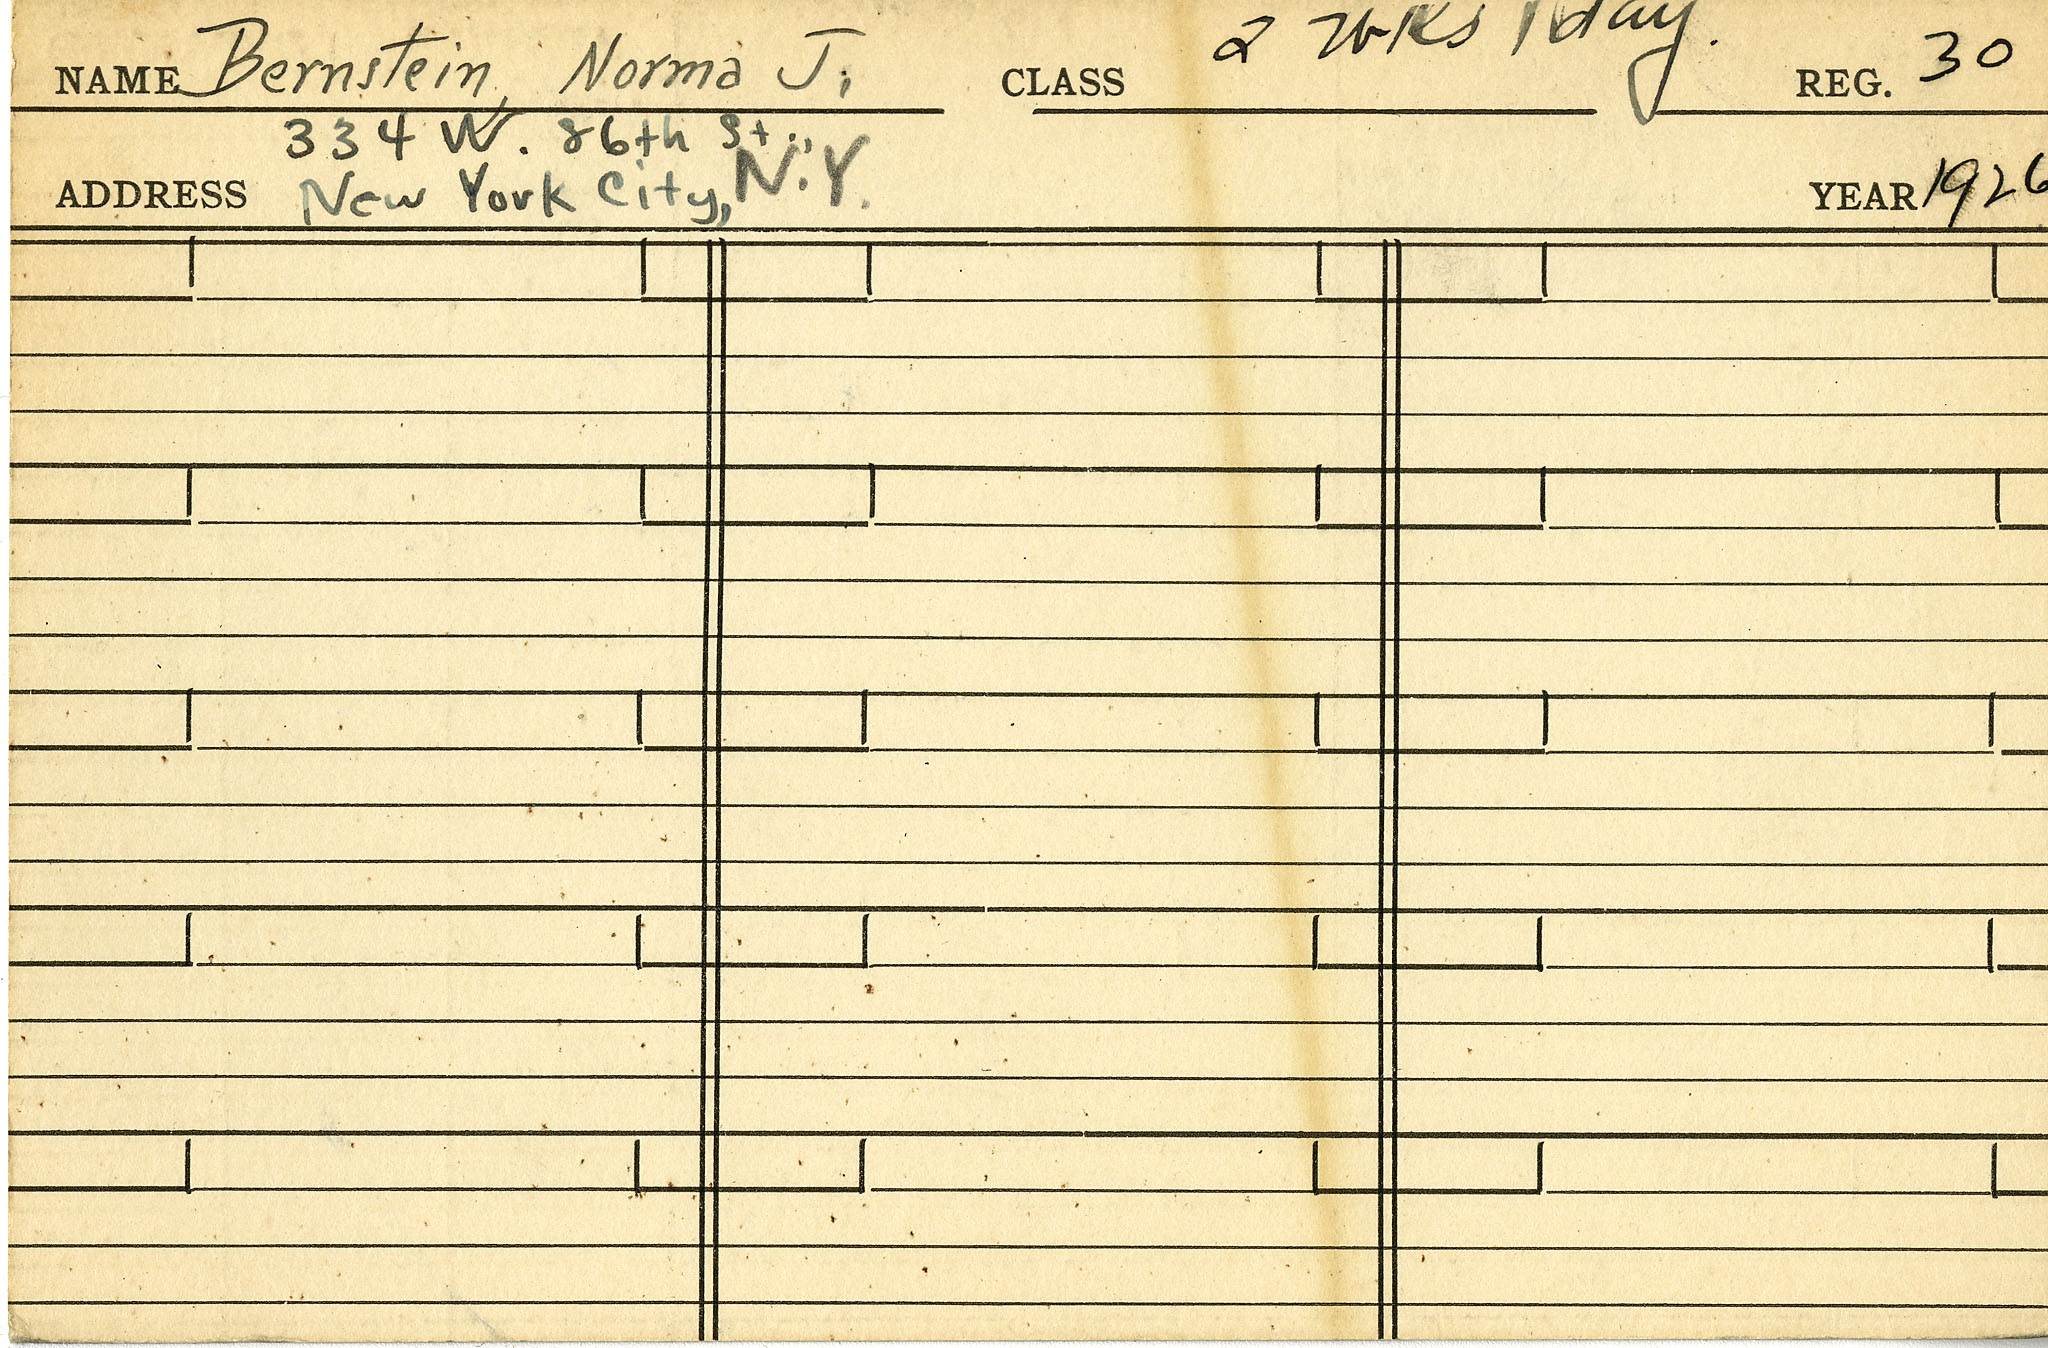 NAME Bernstein, Norma J. CLASS 2 wks 1 day. REG. 30
334 W. 86th St.,
ADDRESS New York City, N.Y. YEAR 1926